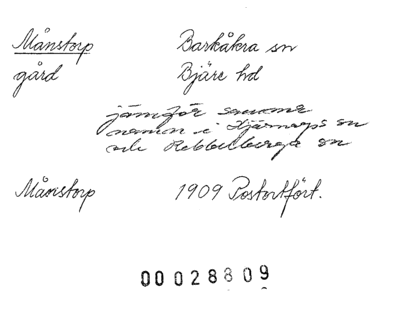 Månstorp Barkåkra sn
gård Bjäre hd
jämför samma
namn i Hjärnarps sn
och Rebbelberga sn
Månstorp 1909 Postortfört.
00028809